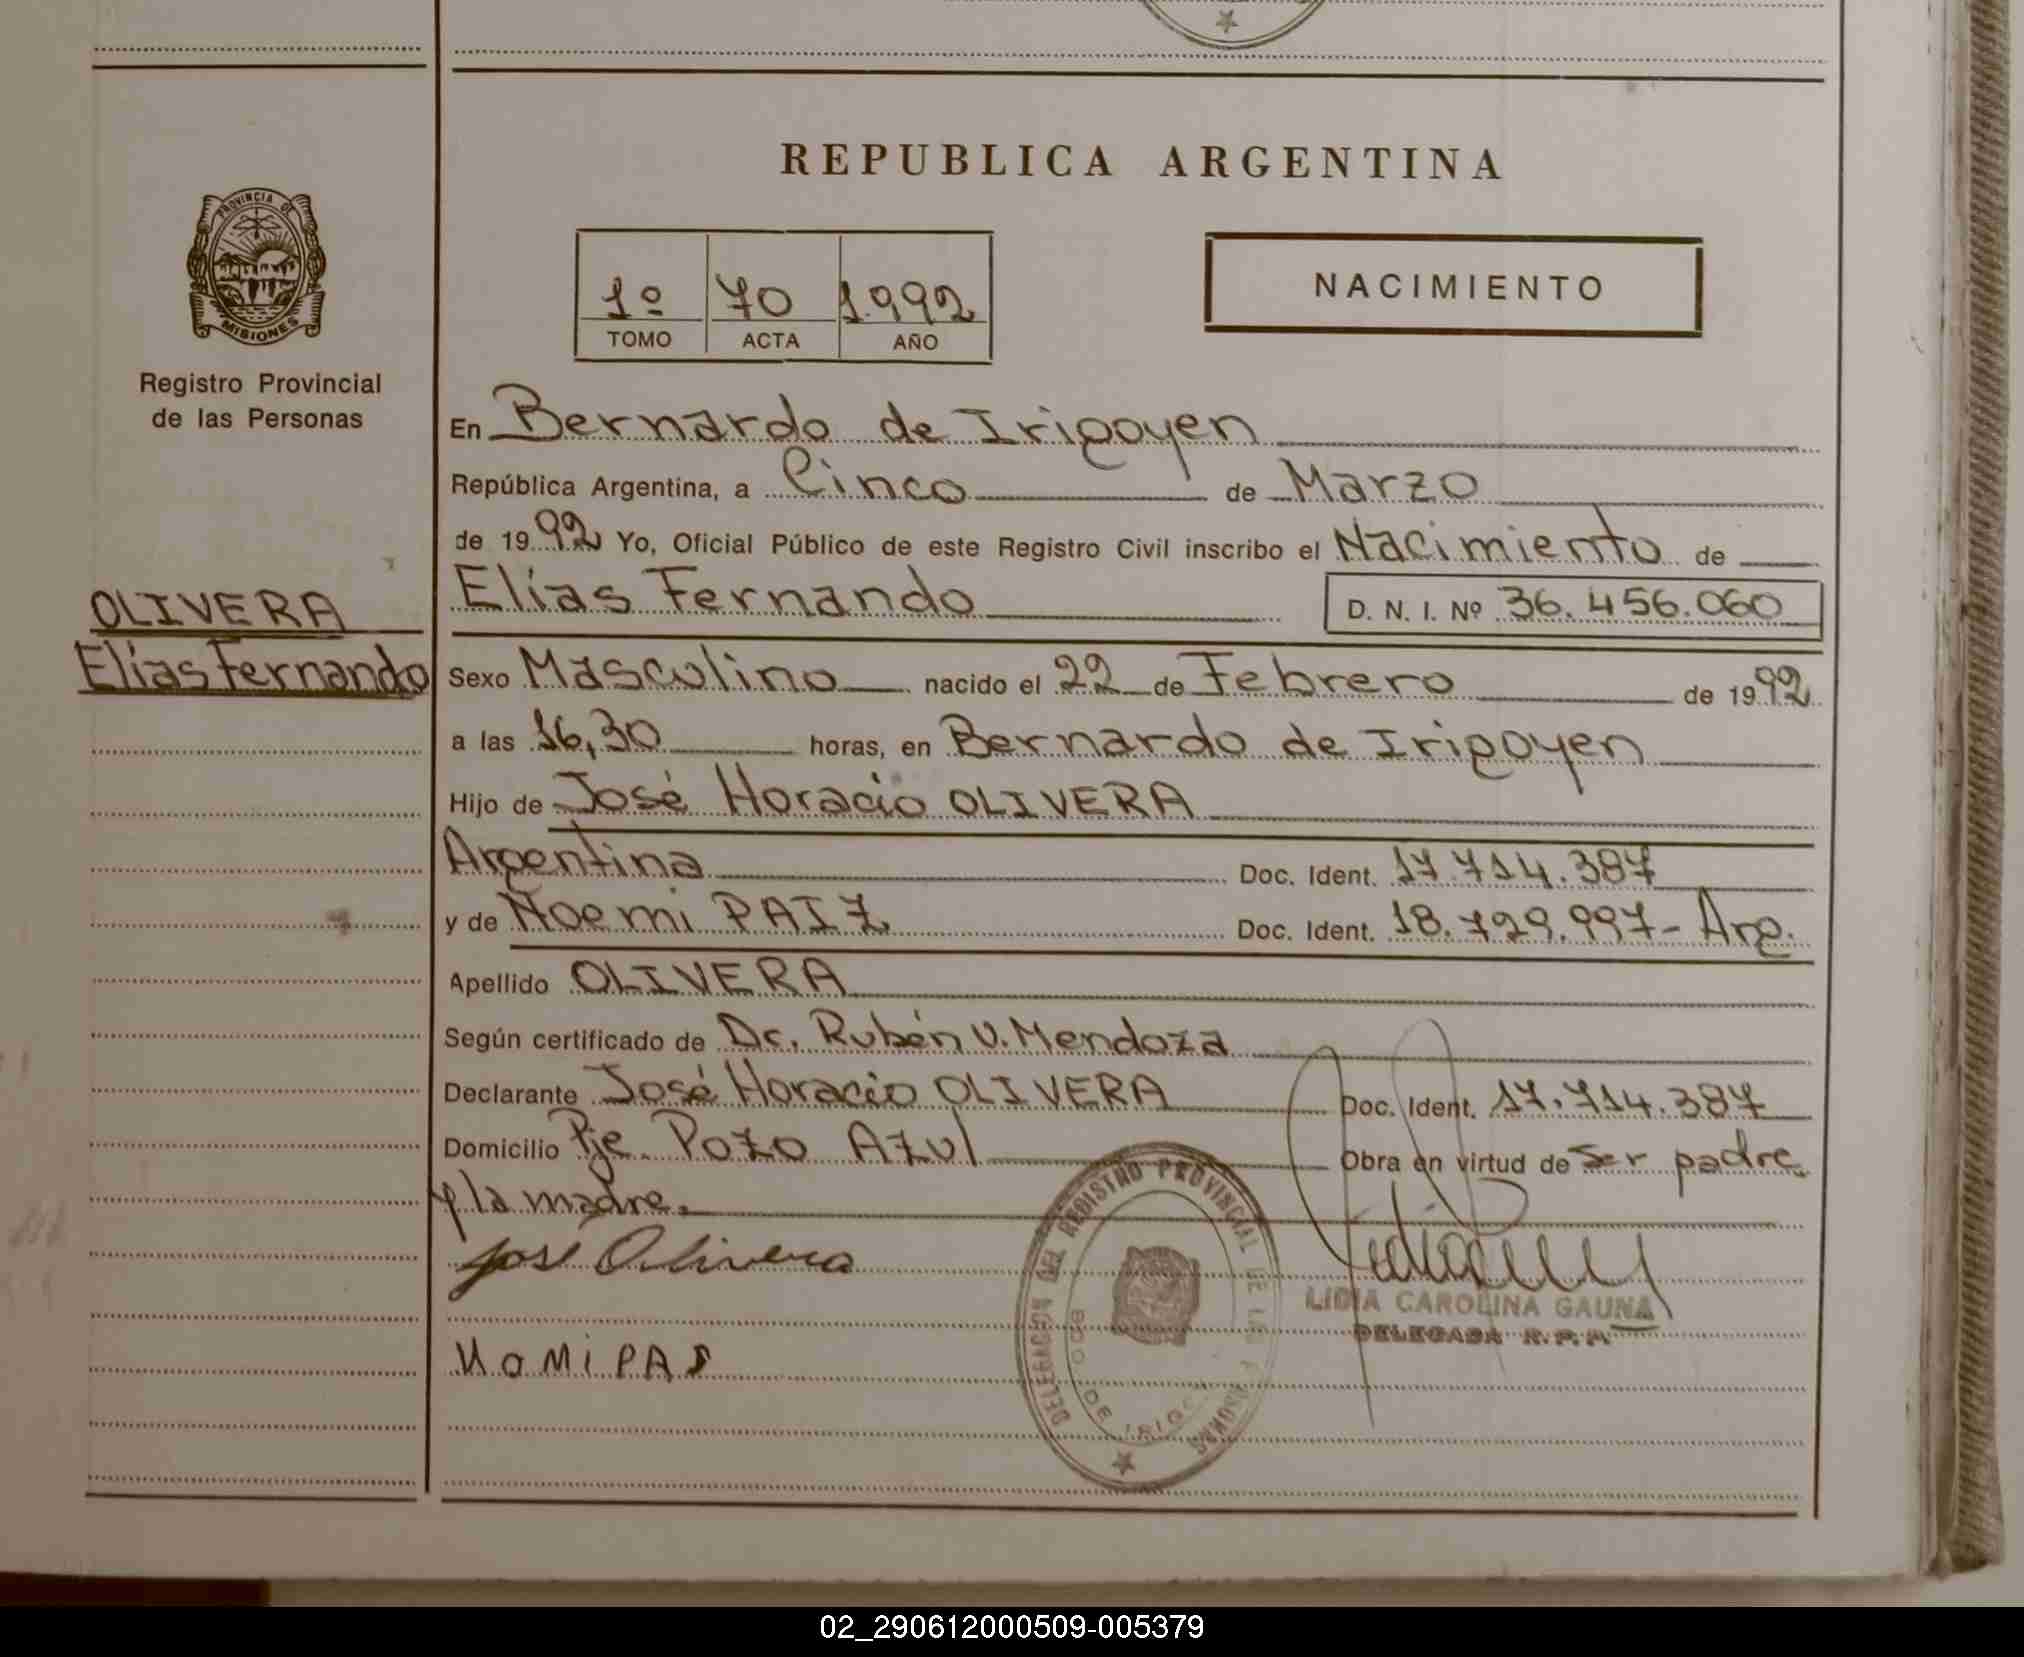 REPUBLICA ARGENTINA
PROVINCIA DE
MISIONES
Registro Provincial
de las Personas
1º 70 1.992
TOMO ACTA AÑO
NACIMIENTO
En Bernardo de Irigoyen
República Argentina, a Cinco de Marzo
de 1992 Yo, Oficial Público de este Registro Civil inscribo el Nacimiento de
OLIVERA
Elías Fernando
Elías Fernando D. N. I. Nº 36.456.060
Sexo Masculino nacido el 22 de Febrero de 1992
a las 16,30 horas, en Bernardo de Irigoyen
Hijo de José Horacio OLIVERA
Argentina Doc. Ident. 17.714.387
y de Noemi PAIZ Doc. Ident. 18.729.997- Arg.
Apellido OLIVERA
Según certificado de Dr. Rubén V. Mendoza
Declarante José Horacio OLIVERA Doc. Ident. 17.714.387
Domicilio Pje. Pozo Azul Obra en virtud de ser padre
y la madre.
José Olivera
LIDIA CAROLINA GAUNA
DELEGADA R.P.P.
DELEGACION DEL REGISTRO PROVINCIAL DE LAS
DE IRIGO
02_290612000509-005379